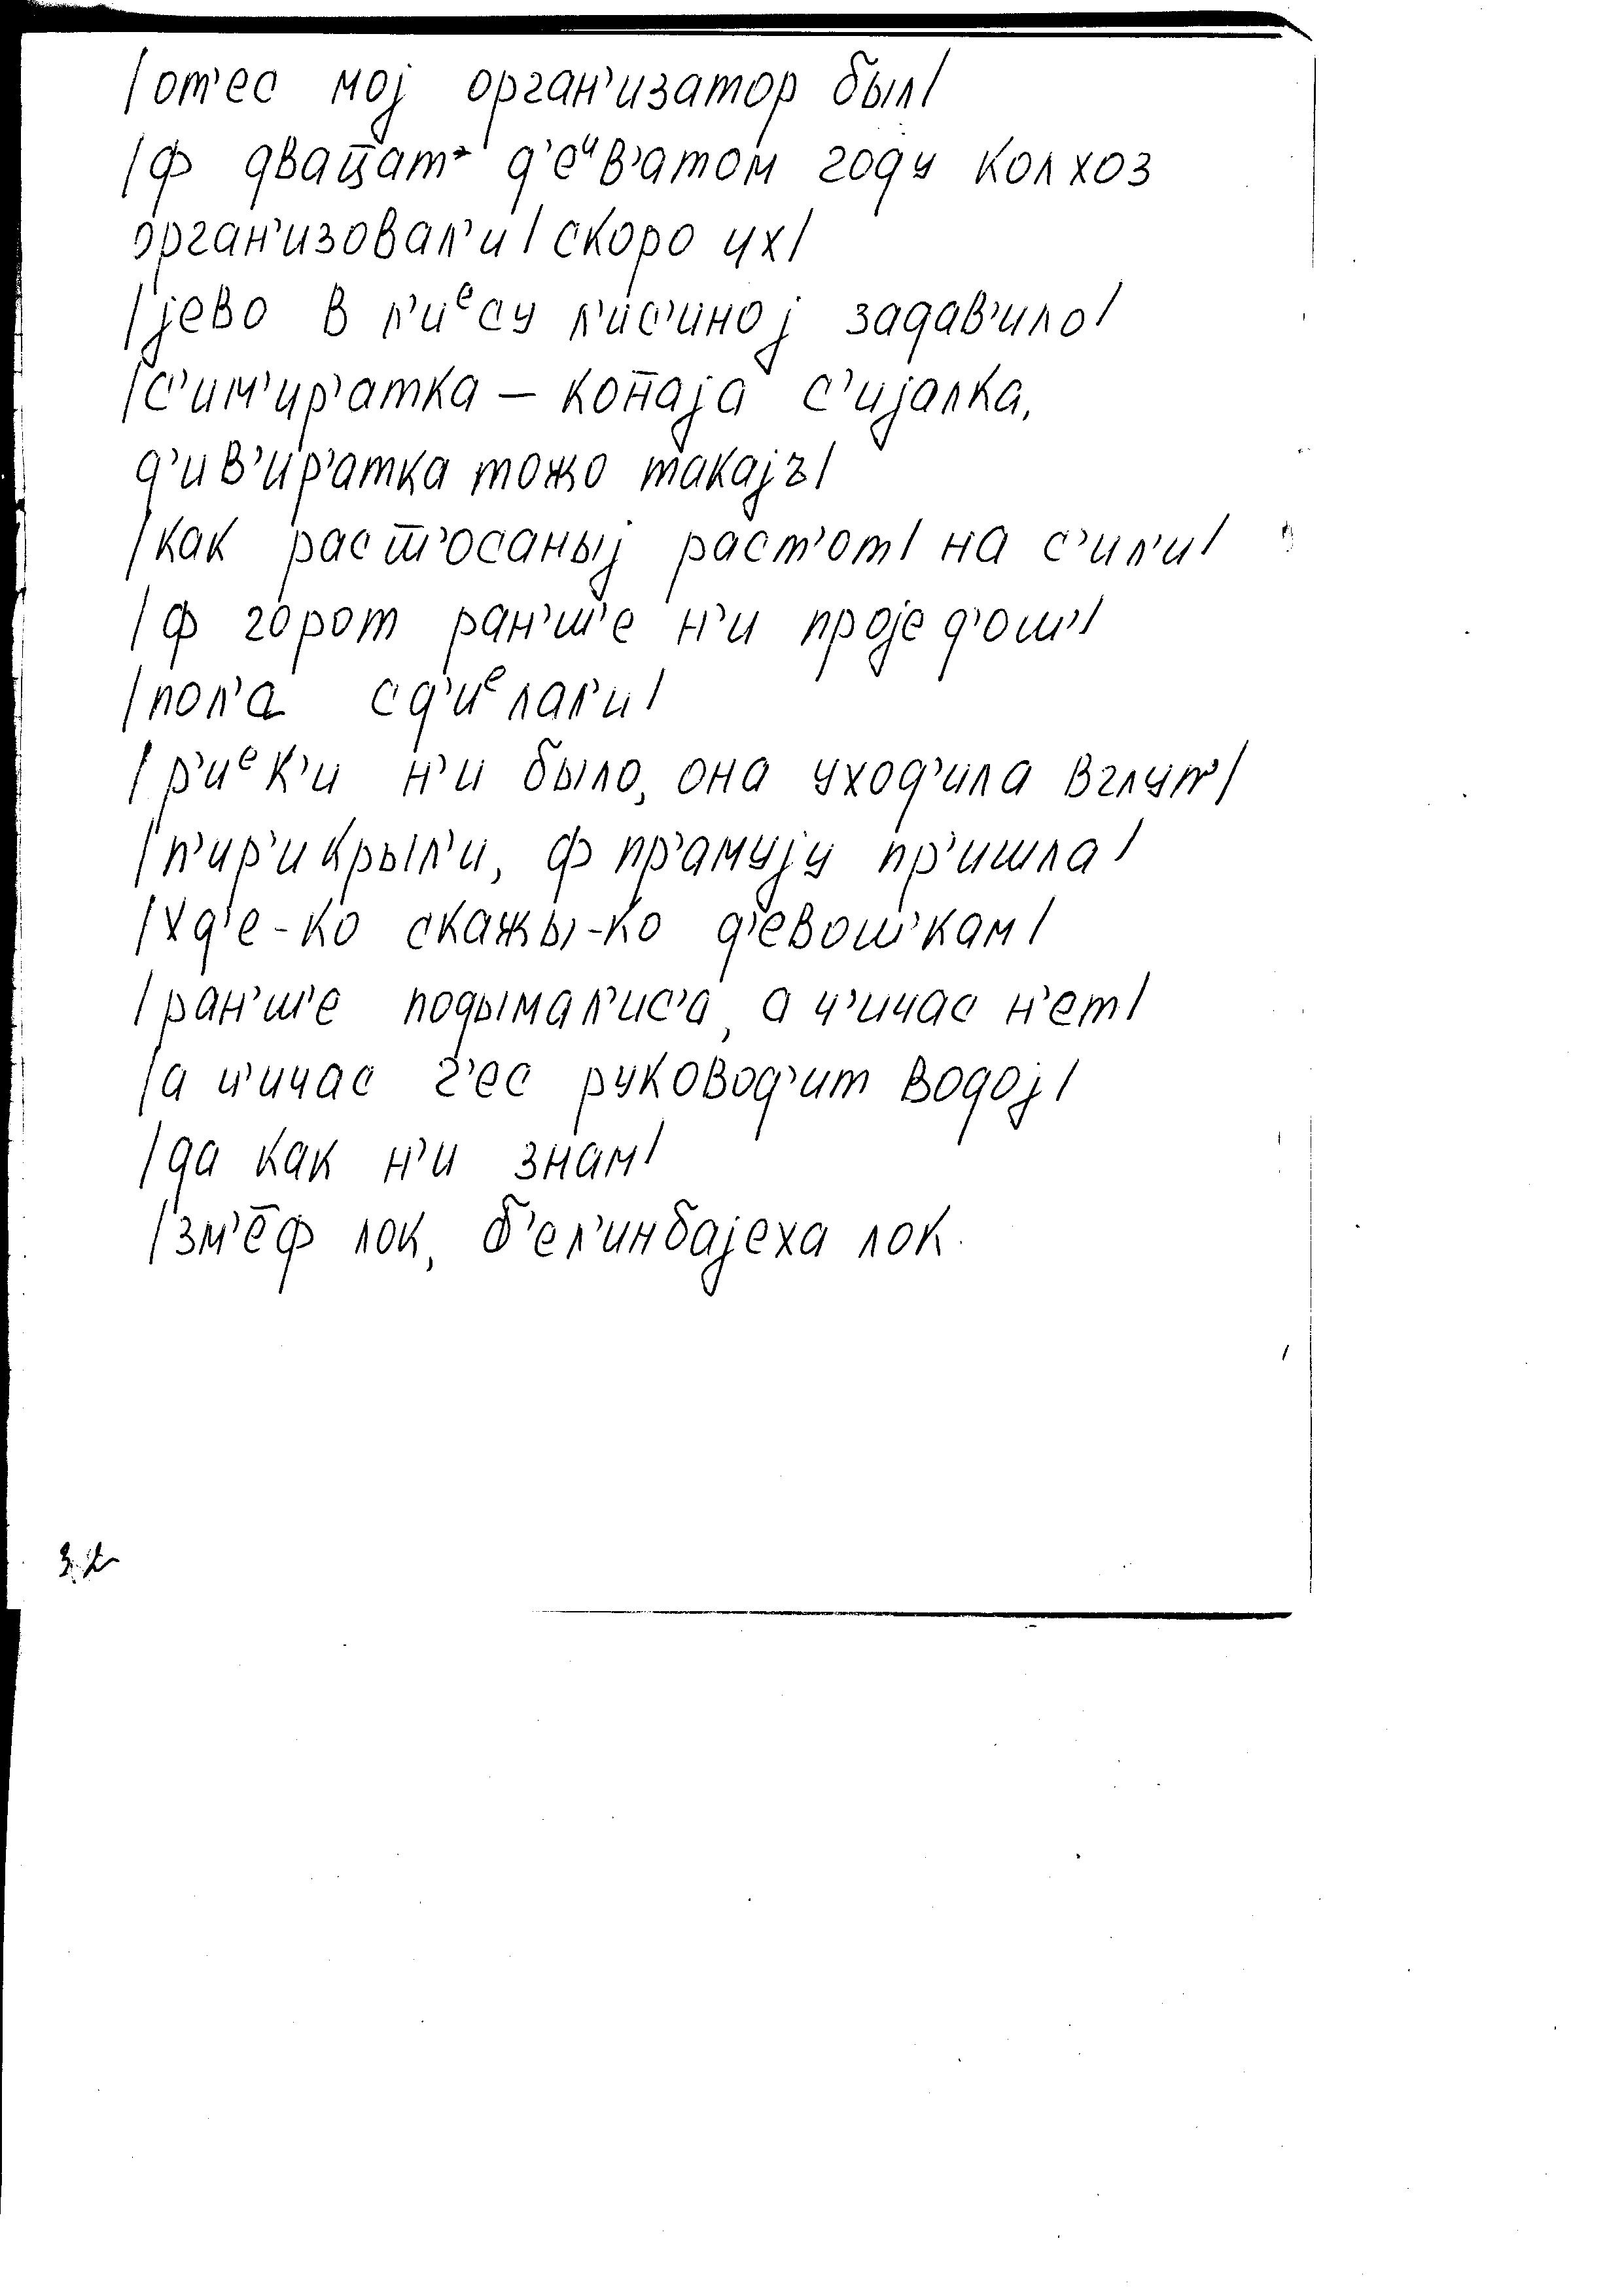 /от'ес мој орган'изатор был/
/ф двац̄ат' д'еᶥв'атом году колхоз
орган'изовал'и/ скоро их/
/јево в л'иᵉсу л'ис'иној задав'ило/
/с'им'ир'атка – кон̄аја с'ијалка,
д'ив'ир'атка тожо такајъ/
/как раст̄'осаныј раст'от/ на с'ил'и/
/ф горот ран'ш'е н'и пројед'ош'/
/пол'а сд'иᵉлал'и/
/р'иᵉк'и н'и было, она уход'ила вглуп'/
/п'ир'икрыл'и, ф пр'амују пр'ишла/
/хд'е-ко скажы-ко д'евош'кам/
/ран'ш'е подымал'ис'а, а ч'ичас н'ет/
/а ч'ичас г'ес руковод'ит водој/
/да как н'и знам/
/зм'е̄ф лок, б'ел'инбајеха лок.